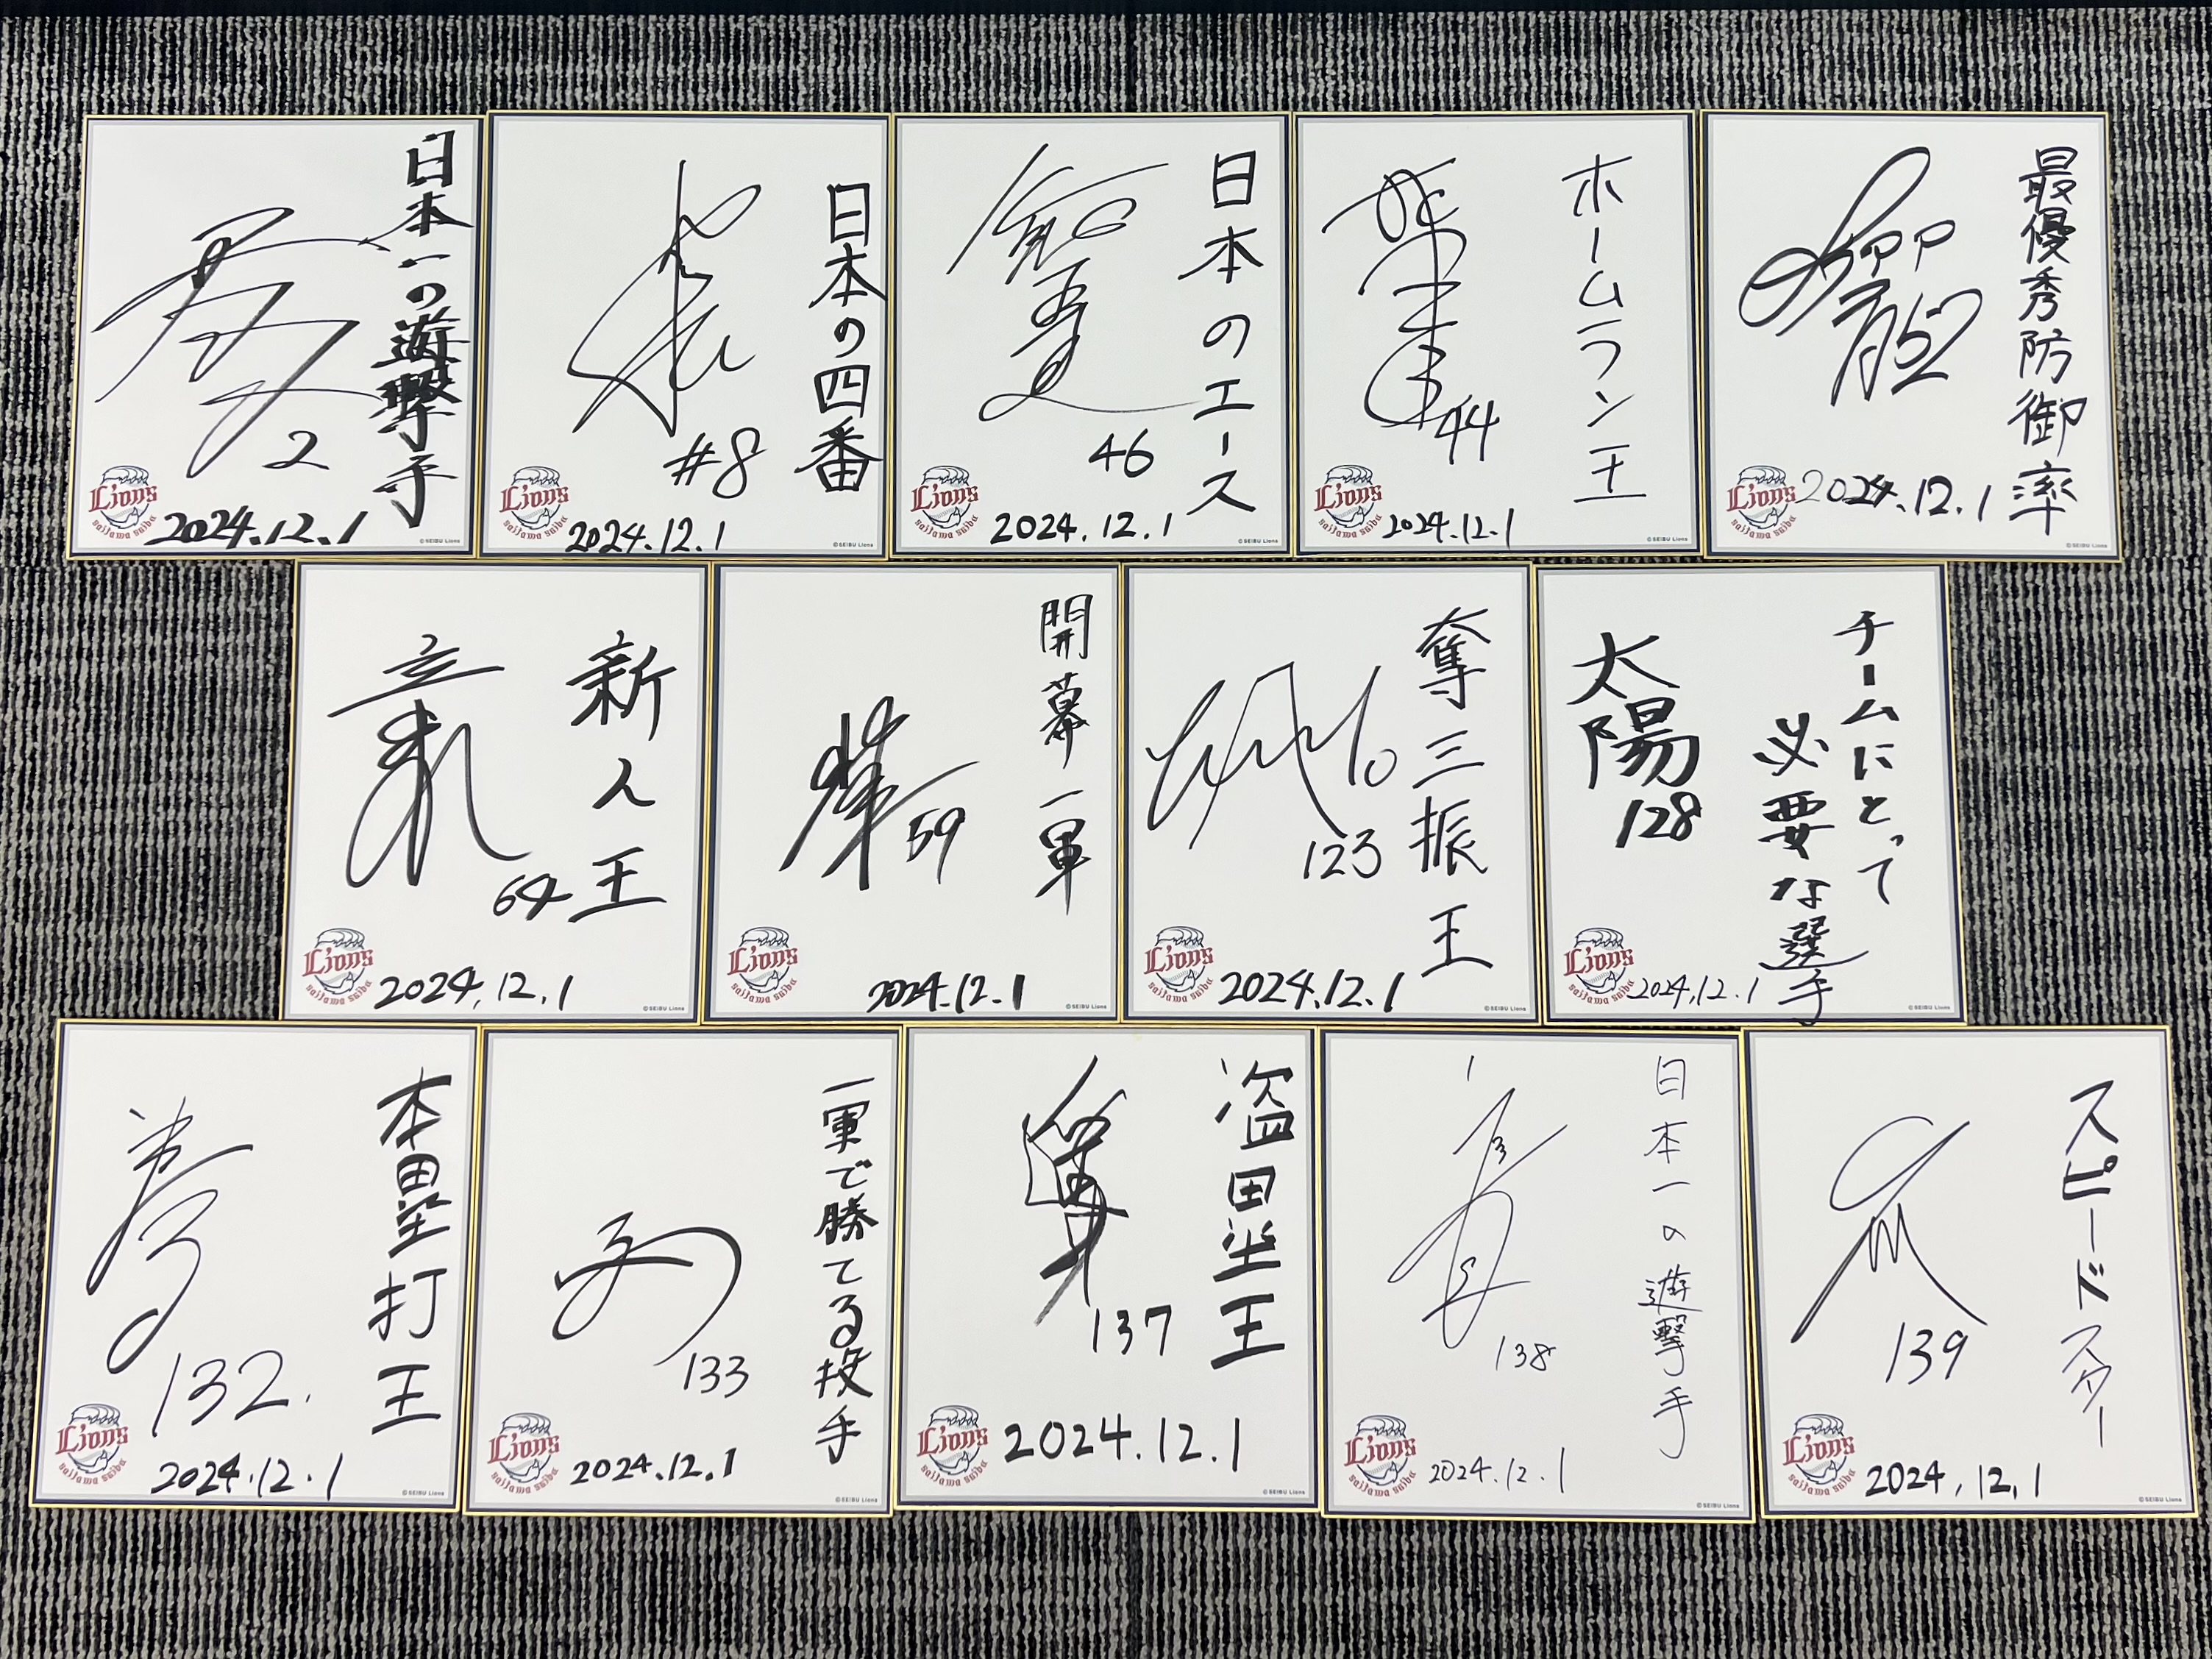 日本一の遊撃手
2
Lions
saitama seibu
2024.12.1
©SEIBU Lions
日本の四番
#8
Lions
saitama seibu
2024.12.1
©SEIBU Lions
日本のエース
46
Lions
saitama seibu
2024.12.1
©SEIBU Lions
ホームラン王
44
Lions
saitama seibu
2024.12.1
©SEIBU Lions
最優秀防御率
52
Lions
saitama seibu
2024.12.1
©SEIBU Lions
新人王
64
Lions
saitama seibu
2024.12.1
©SEIBU Lions
開幕一軍
59
Lions
saitama seibu
2024.12.1
©SEIBU Lions
奪三振王
123
Lions
saitama seibu
2024.12.1
©SEIBU Lions
チームにとって
必要な選手
太陽
128
Lions
saitama seibu
2024.12.1
©SEIBU Lions
本塁打王
132.
Lions
saitama seibu
2024.12.1
©SEIBU Lions
一軍で勝てる投手
133
Lions
saitama seibu
2024.12.1
©SEIBU Lions
盗塁王
137
Lions
saitama seibu
2024.12.1
©SEIBU Lions
日本一の遊撃手
138
Lions
saitama seibu
2024.12.1
©SEIBU Lions
スピードスター
139
Lions
saitama seibu
2024.12.1
©SEIBU Lions